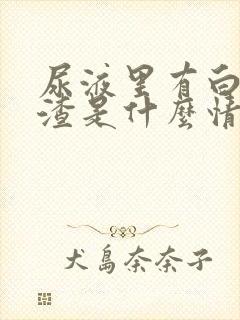 尿液里有白
渣是什麼情
犬島奈奈子